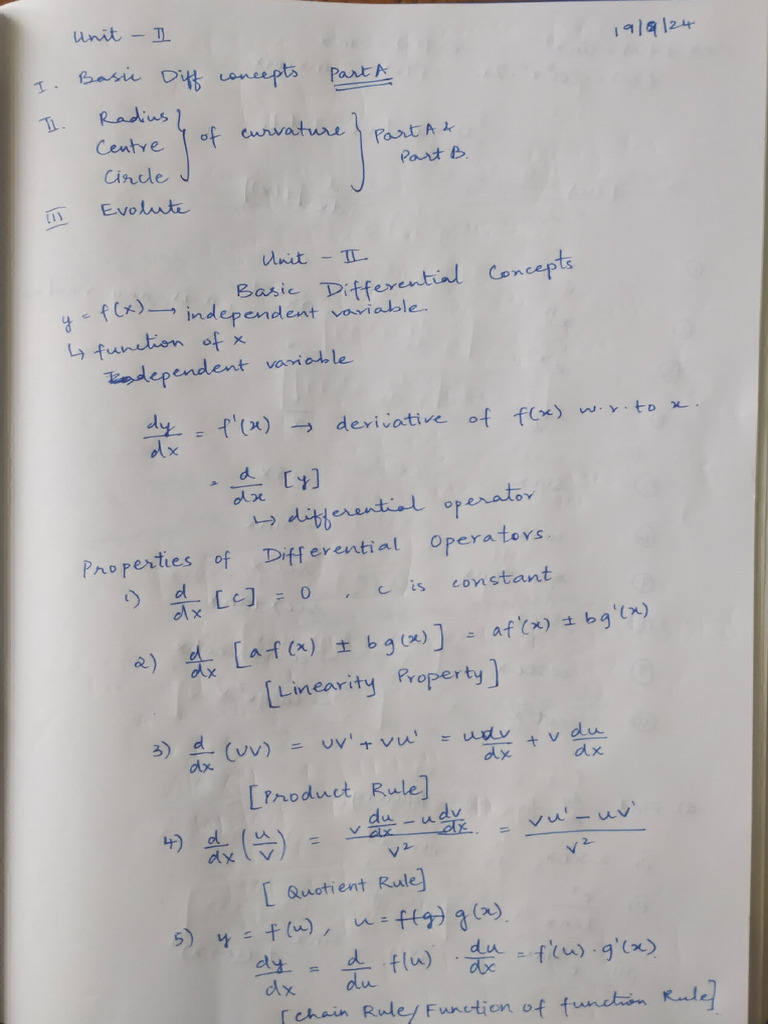 Unit - II
19/9/24
I. Basic Diff concepts Part A
II. Radius
Centre } of curvature } Part A &
Circle Part B.
III Evolute
Unit - II
Basic Differential Concepts
y = f(x) → independent variable.
↳ function of x
dependent variable
dy/dx = f'(x) → derivative of f(x) w.r.to x.
= d/dx [y]
↳ differential operator
Properties of Differential Operators.
1) d/dx [c] = 0 , c is constant
2) d/dx [a f(x) ± b g(x)] = af'(x) ± bg'(x)
[Linearity Property]
3) d/dx (uv) = uv' + vu' = u dv/dx + v du/dx
[Product Rule]
4) d/dx (u/v) = (v du/dx - u dv/dx)/v² = (vu' - uv')/v²
[Quotient Rule]
5) y = f(u), u = f(g) g(x).
dy/dx = d/du f(u) · du/dx = f'(u) · g'(x)
[Chain Rule/Function of function Rule]